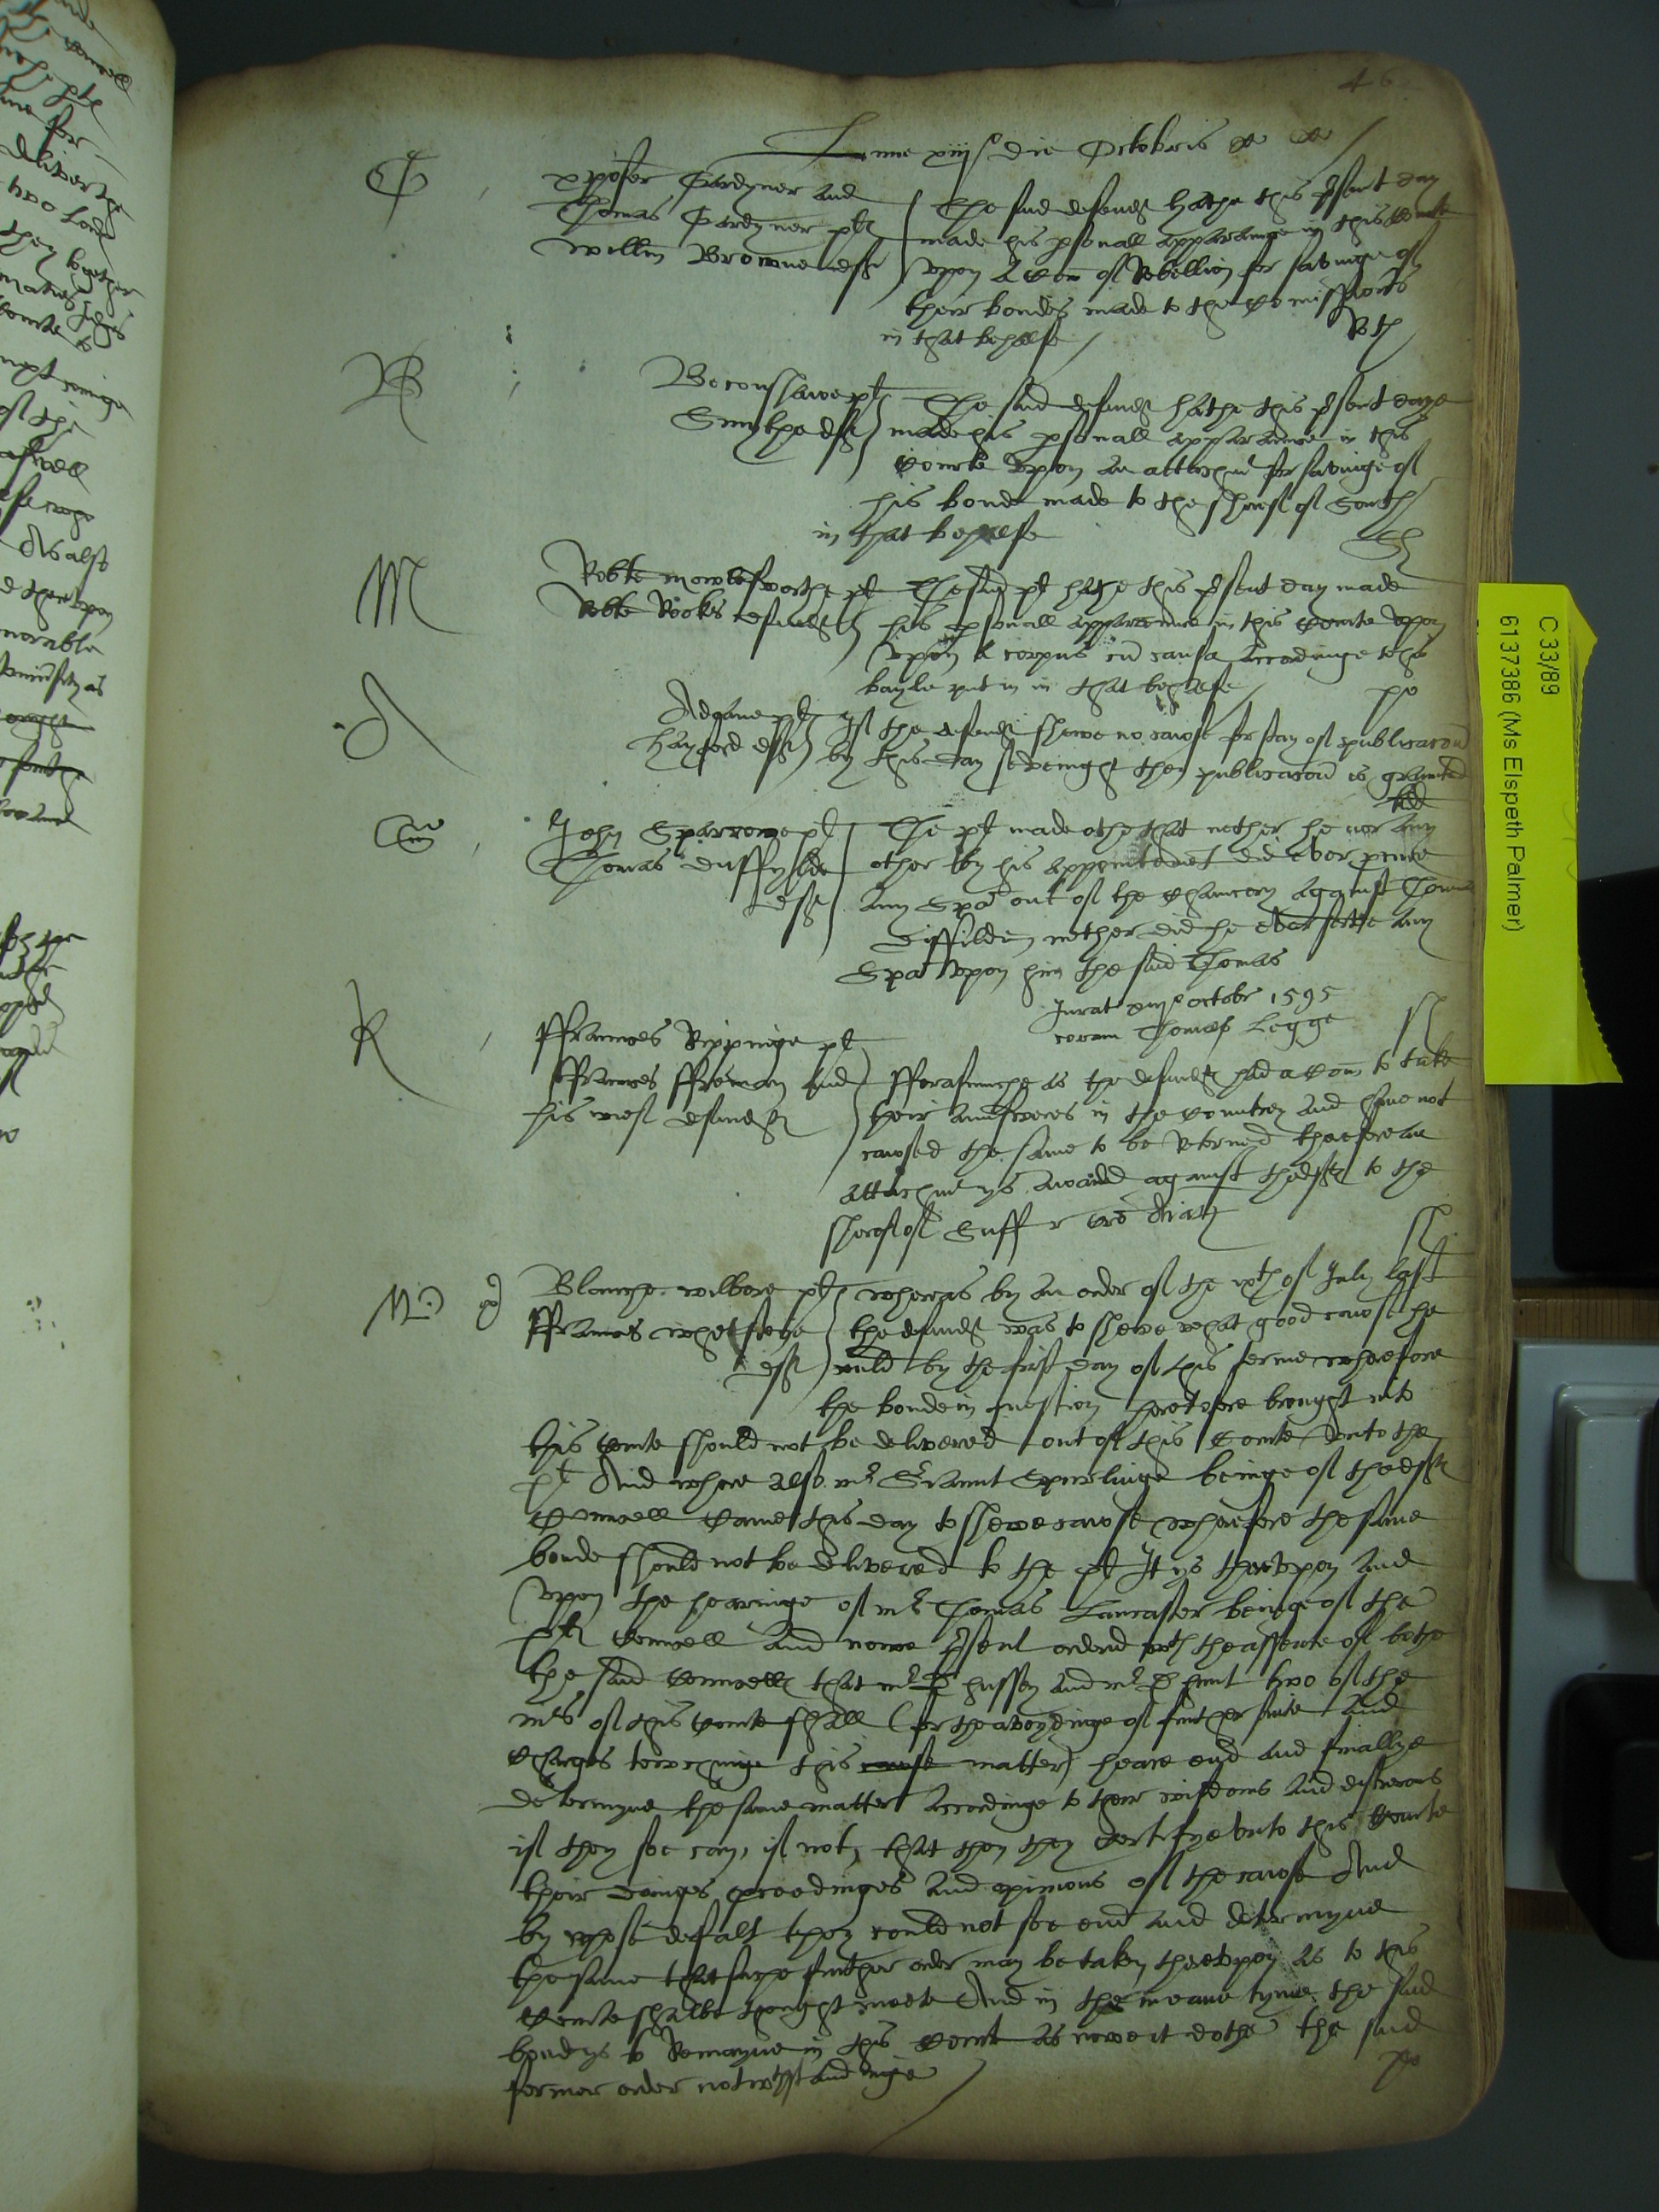 46
Lune xiij die Octobris
Gardyner and
Thomas Gardyner plt
Willm Browne deft
The said defend hathe this psent day
made his psonall apparance in this Courte
upon a Com of Rebellion for savinge of
their bondes made to the Comissioners
in that behalfe
R
Beconshawe plt
Smythe deft
The said defend hathe this psent daye
made his psonall apparance in this
Courte upon an attachmt for savinge of
his bonde made to the Shreif of South
in that behalfe
M
Robte plt
Robte Rookes defend
The said plt hathe this psent day made
his psonall apparance in this Courte upon
upon a corpus cu causa accordinge to his
bayle put in in that behalfe
A
plt
Hayford deft
If the defend shewe no cause for stay of publicacon
by this day sevenight then publicacon is graunted
John Sparrowe plt
Thomas Duffylde
deft
The plt made othe that nether he nor any
other by his appointemt did ever
any Spa out of the Chauncery against Thomas
Diffilde nether did he ever serve any
Spa upon him the said Thomas
Jurat xiij octobr 1595
coram Thomas Legge
K
ffraunces Kippinge plt
ffraunces ffreman and
his wief defend
fforasmuche as the defend had a Com to take
their aunsweres in the Countrey and have not
caused the same to be Retorned therefore an
attachmt ys awarded against the deft to the
Shereif of Suff
Blanche Wilbore plt
ffraunces Whetstone
deft
whereas by an order of the of July last
the defend was to shewe what good cause he
could by the first day of this terme wherefore
the bonde in question heretofore brought into
this Courte should not be delivered out of this Courte unto the
plt And where also mr Sriaunt Spurlinge beinge of the deft
Councell Came this day to shewe cause wherefore the same
bonde should not be delivered to the plt It ys thereupon and
upon the hearinge of mr Thomas Lancaster beinge of the
plt Councell and nowe psent ordered wth the assente of bothe
the said Councell that mr D Hussey and mr D Hunt two of the
mrs of this Courte shall (for the avoydinge of further suite and
Charges towchinge this cause matter) heare end and finallye
determyne the same matter accordinge to their wisdoms and discrecons
if they soe can, if not, that then they Certifye unto this Courte
their doinges proceedinges and opinions of the cause And
by whose defalt they could not soe end and determyne
the same that suche further order may be taken thereupon as to this
Courte shalbe thought meete And in the meane tyme the said
bond ys to Remayne in this Court as nowe it dothe the said
former order notwthstandinge
C 33/89
6137386 (Ms Elspeth Palmer)